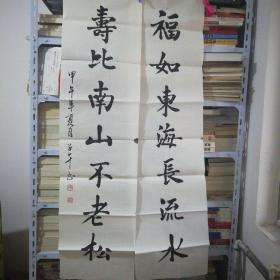 福如東海長流水
壽比南山不老松
甲午年夏月